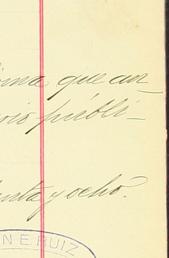 ima que an-
cio públi-
nta y ocho.
N E. RUIZ